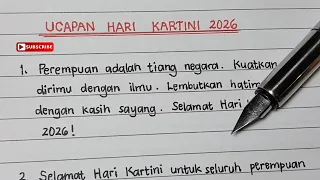 UCAPAN HARI KARTINI 2026
SUBSCRIBE
1. Perempuan adalah tiang negara. Kuatkan
dirimu dengan ilmu. Lembutkan hatim
dengan kasih sayang. Selamat Hari
2026!
2. Selamat Hari Kartini untuk seluruh perempuan